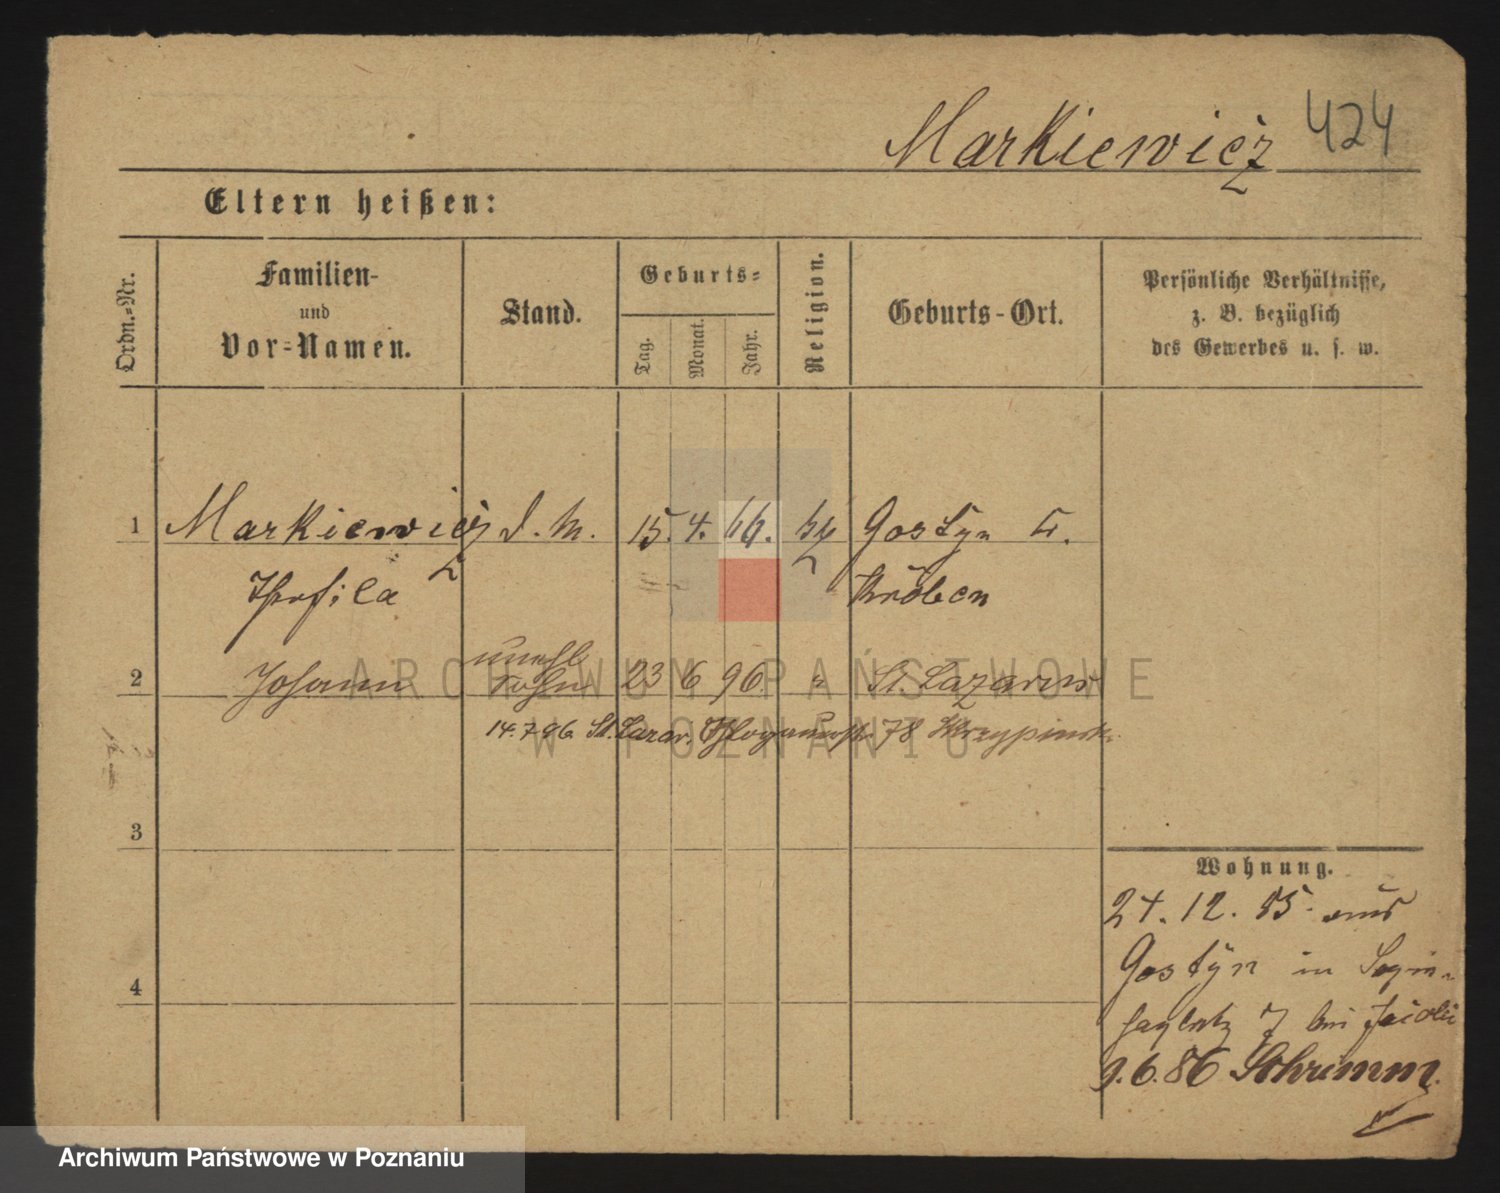 Markiewicz 424
Eltern heißen:
Ordn.-Nr.
Familien-
und
Vor-Namen.
Stand.
Geburts-
Tag.
Monat.
Jahr.
Religion.
Geburts-Ort.
Persönliche Verhältnisse,
z. B. bezüglich
des Gewerbes u. s. w.
1 Markiewicz d. M. 15. 4. 66. Gostyn
Kröben
unehl
2 Johann Sohn 23 6 96 " St. Lazarus
14.7.96 St. Lazar. 78
3
Wohnung.
24. 12. 85. aus
Gostÿn in
4
7 bei
9. 6. 86 Schrimm
ARCHIWUM PAŃSTWOWE
W POZNANIU
Archiwum Państwowe w Poznaniu